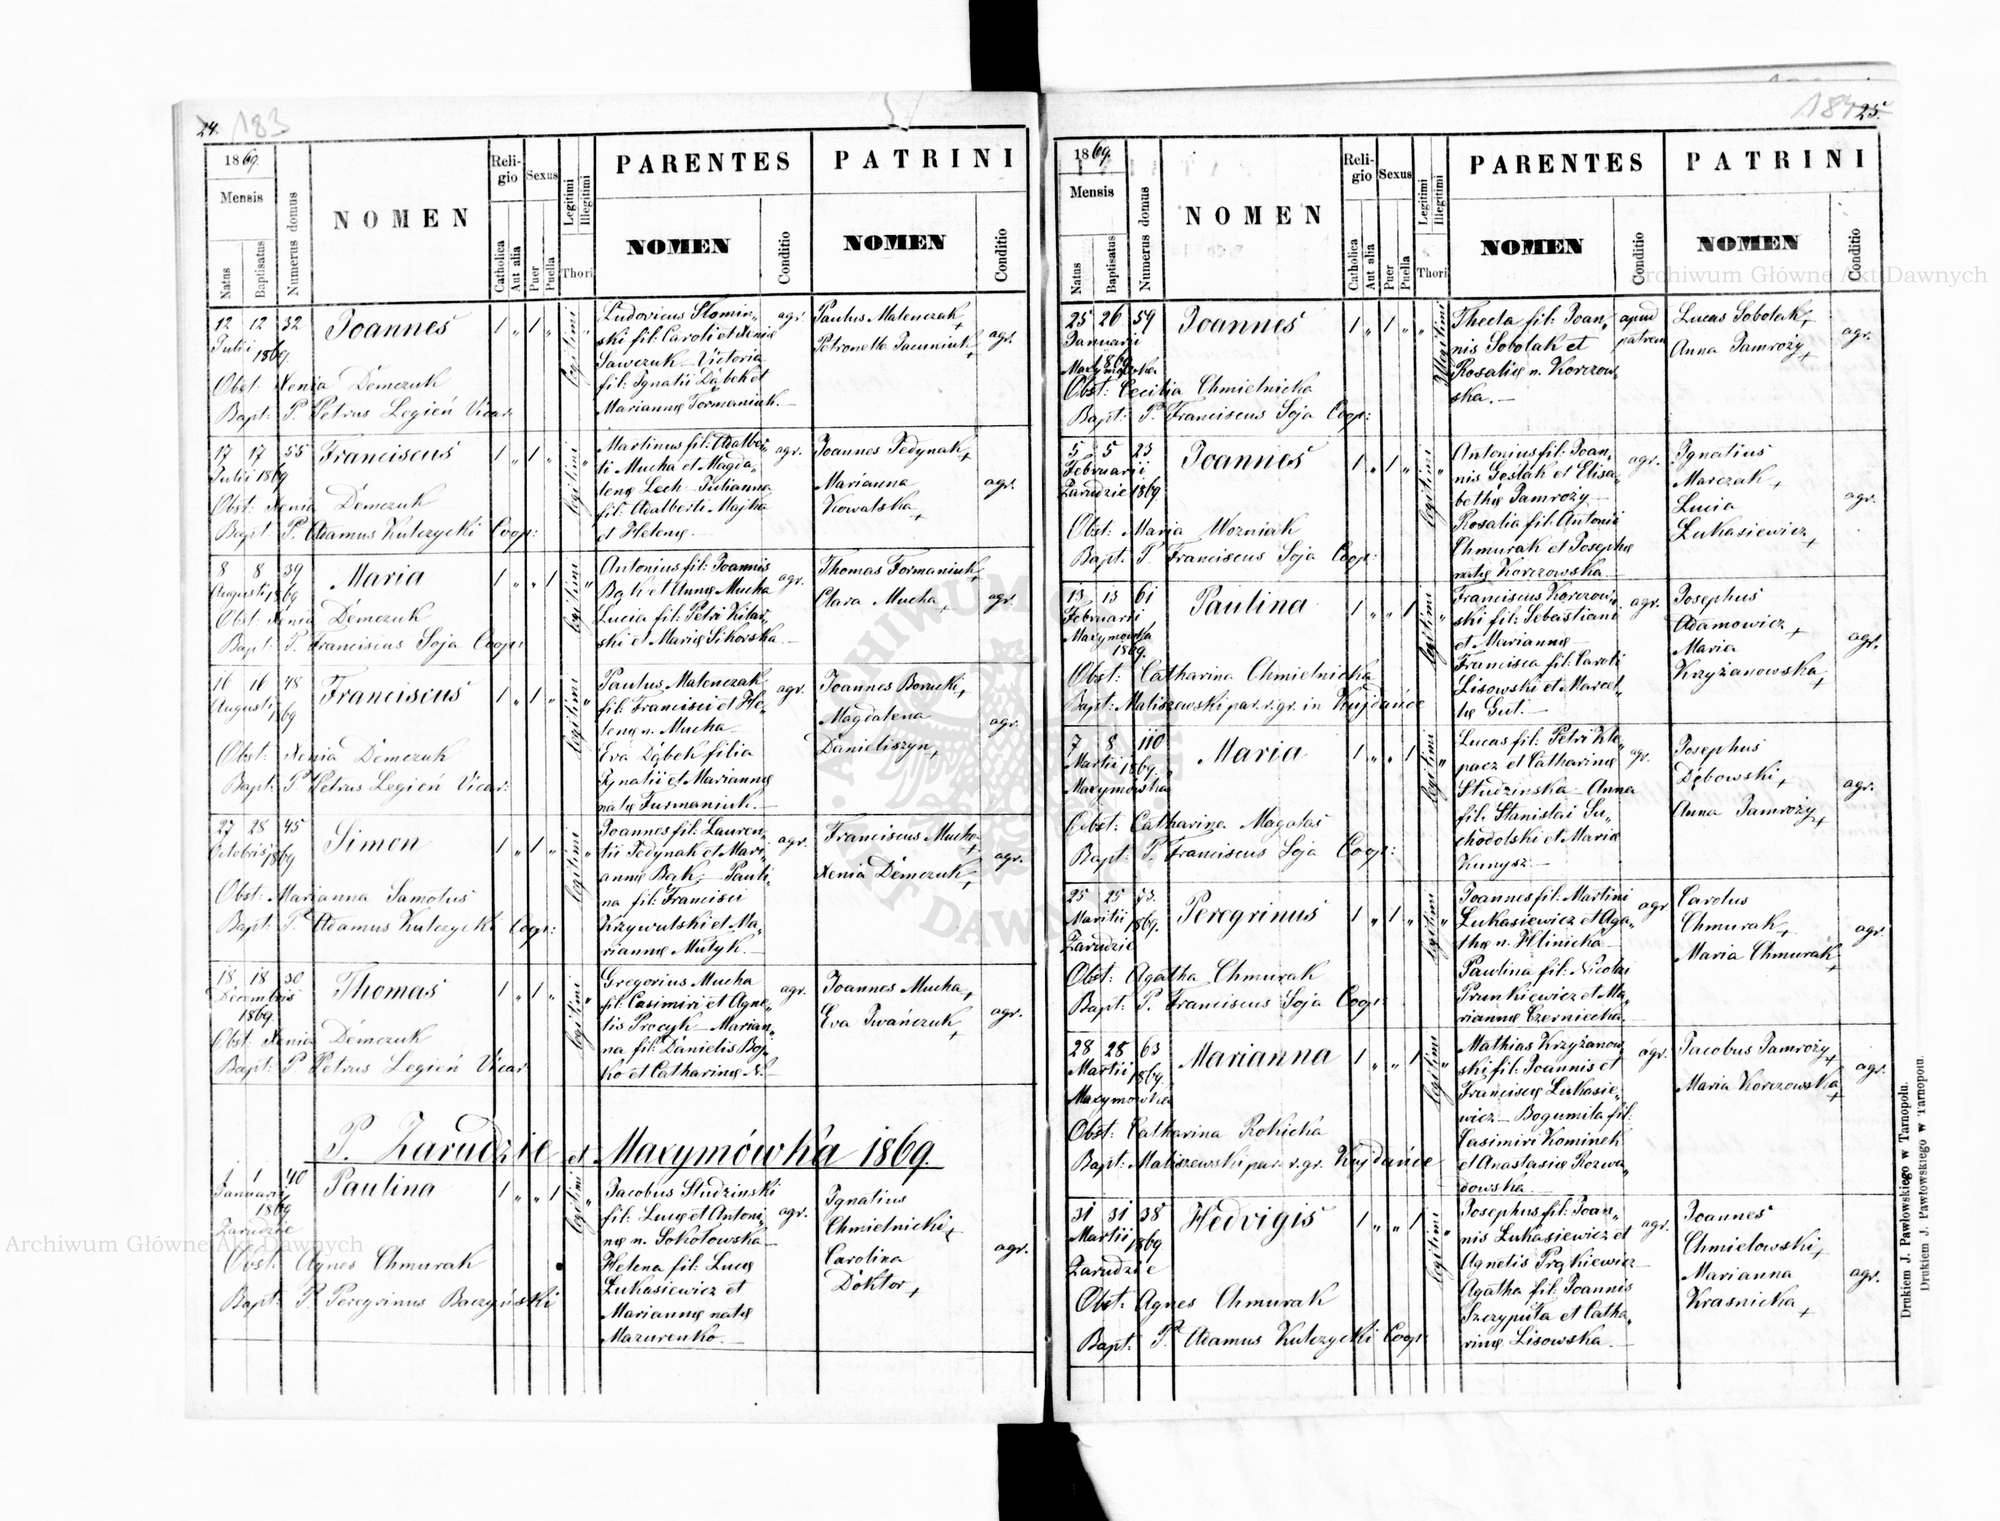 24. 183
1869.
Mensis
Natus
Baptisatus
Numerus domus
NOMEN
Religio
Catholica
Aut alia
Sexus
Puer
Puella
Legitimi
Illegitimi
Thori
PARENTES
NOMEN
Conditio
PATRINI
NOMEN
Conditio
12 12 32 Joannes 1 " 1 " legitimi "
Julii 1869.
Obst: Xenia Demczuk
Bapt: P. Petrus Legień Vicar:
Ludovicus Slomin„
ski fil: Caroli et Xenię
Sawczuk – Victoria
fil: Ignatii Dąbek et
Mariannę Formaniuk. –
agr.
Paulus Matenczak +
Petronella Jacuniuk +
agr.
17 17 55 Franciscus 1 " 1 " legitimi "
Julii 1869
Obst: Xenia Demczuk
Bapt P. Adamus Kulczycki Coop:
Martinus fil: Adalber„
ti Mucha et Magda„
lenę Lech – Julianna
fil: Adalberti Majka
et Helenę. –
agr.
Joannes Fedynak +
Marianna
Kowalska +
agr.
8 8 39 Maria 1 " " 1 legitimi "
Augusti 1869
Obst: Xenia Demczuk
Bapt: P. Franciscus Soja Coop:
Antonius fil: Joannis
Bąk et Annę Mucha
Lucia fil: Petri Kitar„
ski et Marię Sikorska –
agr.
Thomas Formaniuk +
Clara Mucha +
agr.
16 16 48 Franciscus 1 " 1 " legitimi "
Augusti 1869
Obst: Xenia Demczuk
Bapt: P. Petrus Legień Vicar:
Paulus Matenczak
fil: Francisci et He„
lenę n. Mucha –
Eva Dąbek filia
Ignatii et Mariannę
natę Furmaniuk. –
agr.
Joannes Borucki +
Magdalena
Danieliszyn +
agr.
27 28 45 Simon 1 " 1 " legitimi "
Octobris 1869
Obst: Marianna Samotus
Bapt: P. Adamus Kulczycki Coop:
Joannes fil: Lauren„
tii Fedynak et Mari„
annę Bąk – Pauli„
na fil: Francisci
Krzywulski et Ma„
riannę Mutyk. –
agr.
Franciscus Mucha +
Xenia Demczuk +
agr.
18 18 30 Thomas 1 " 1 " legitimi "
Decembris
1869
Obst. Xenia Demczuk
Bapt: P. Petrus Legień Vicar
Gregorius Mucha
fil: Casimiri et Agne„
tis Procyk – Marian„
na fil: Danielis Boj„
ko et Catharinę N. –
agr.
Joannes Mucha +
Eva Iwańczuk +
agr.
P. Zarudzie et Maxymówka 1869.
1 1 40 Paulina 1 " " 1 legitimi "
Januarii
1869
Zarudzie
Obst: Agnes Chmurak
Bapt: P. Peregrinus Baczyński
Jacobus Studzinski
fil: Lucę et Antoni„
nę n. Sokołowska –
Helena fil: Lucę
Łukasiewicz et
Mariannę natę
Mazurenko. –
agr.
Ignatius
Chmielnicki +
Carolina
Doktor +
agr.
184 25.
1869.
Mensis
Natus
Baptisatus
Numerus domus
NOMEN
Religio
Catholica
Aut alia
Sexus
Puer
Puella
Legitimi
Illegitimi
Thori
PARENTES
NOMEN
Conditio
PATRINI
NOMEN
Conditio
25 26 54 Joannes 1 " 1 " " Illegitimi
Januarii
1869
Maxymówka
Obst: Cecilia Chmielnicka
Bapt: P. Franciscus Soja Coop:
Thecla fil: Joan„
nis Sobolak et
Rosalię n. Korczow„
ska. –
apud
patrem
Lucas Sobolak +
Anna Jamroży +
agr.
5 5 23 Joannes 1 " 1 " legitimi "
Februarii
Zarudzie 1869
Obst: Maria Wozniak
Bapt: P. Franciscus Soja Coop:
Antonius fil: Joan„
nis Goslak et Elisa„
bethę Jamroży –
Rosalia fil: Antonii
Chmurak et Josephę
natę Korczowska. –
agr.
Ignatius
Marczak +
Lucia
Łukasiewicz +
agr.
13 13 61 Paulina 1 " " 1 legitimi "
Februarii
Maxymówka
1869.
Obst: Catharina Chmielnicka
Bapt: Maliszewski par. r. gr. in Kujdańce
Franciscus Korczow„
ski fil: Sebastiani
et Mariannę –
Francisca fil: Caroli
Lisowski et Marcel„
lę Gut. –
agr.
Josephus
Adamowicz +
Maria
Krzyżanowska +
agr.
7 8 110 Maria 1 " " 1 legitimi "
Martii 1869.
Maxymówka
Obst: Catharina Magalas
Bapt: P. Franciscus Soja Coop:
Lucas fil: Petri Kło„
pacz et Catharinę
Studzinska – Anna
fil. Stanislai Su„
chodolski et Marię
Kunysz. –
agr.
Josephus
Dębowski +
Anna Jamroży +
agr.
25 25 53. Peregrinus 1 " 1 " legitimi "
Martii 1869.
Zarudzie
Obst: Agatha Chmurak
Bapt: P. Franciscus Soja Coop:
Joannes fil: Martini
Łukasiewicz et Aga„
thę n. Hlinicka –
Paulina fil: Nicolai
Prunkiewicz et Ma„
riannę Czerniecka. –
agr
Carolus
Chmurak +
Maria Chmurak +
agr.
28 28 63 Marianna 1 " " 1 legitimi "
Martii 1869.
Maxymówka
Obst: Catharina Rokicka
Bapt: Maliszewski par. r. gr. Kujdańce
Mathias Krzyżanow
ski fil: Joannis et
Franciscę Łukasie„
wicz – Bogumila fil:
Casimiri Kominek
et Anastasię Rozwa„
dowska. –
agr.
Jacobus Jamroży +
Maria Korczowska +
agr.
31 31 38 Hedvigis 1 " " 1 legitimi "
Martii 1869
Zarudzie
Obst: Agnes Chmurak
Bapt: P. Adamus Kulczycki Coop:
Josephus fil: Joan„
nis Łukasiewicz et
Agnetis Prąkiewicz –
Agatha fil: Joannis
Szczypuła et Catha„
rinę Lisowska. –
agr.
Joannes
Chmielowski +
Marianna
Krasnicka +
agr.
Drukiem J. Pawłowskiego w Tarnopolu.
Drukiem J. Pawłowskiego w Tarnopolu.
Archiwum Główne Akt Dawnych
Archiwum Główne Akt Dawnych
ARCHIWUM
AKT DAWNYCH